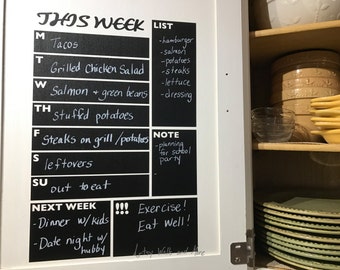 THIS WEEK
M
Tacos
T
Grilled Chicken Salad
W
Salmon & green beans
TH
Stuffed potatoes
F
Steaks on grill/potatoes
S
leftovers
SU
out to eat
LIST
-hamburger
-salmon
-potatoes
-steaks
-lettuce
-dressing
NOTE
-planning
for school
party
-
NEXT WEEK
-Dinner w/kids
-Date night w/
hubby
!!!
Exercise!
Eat Well!